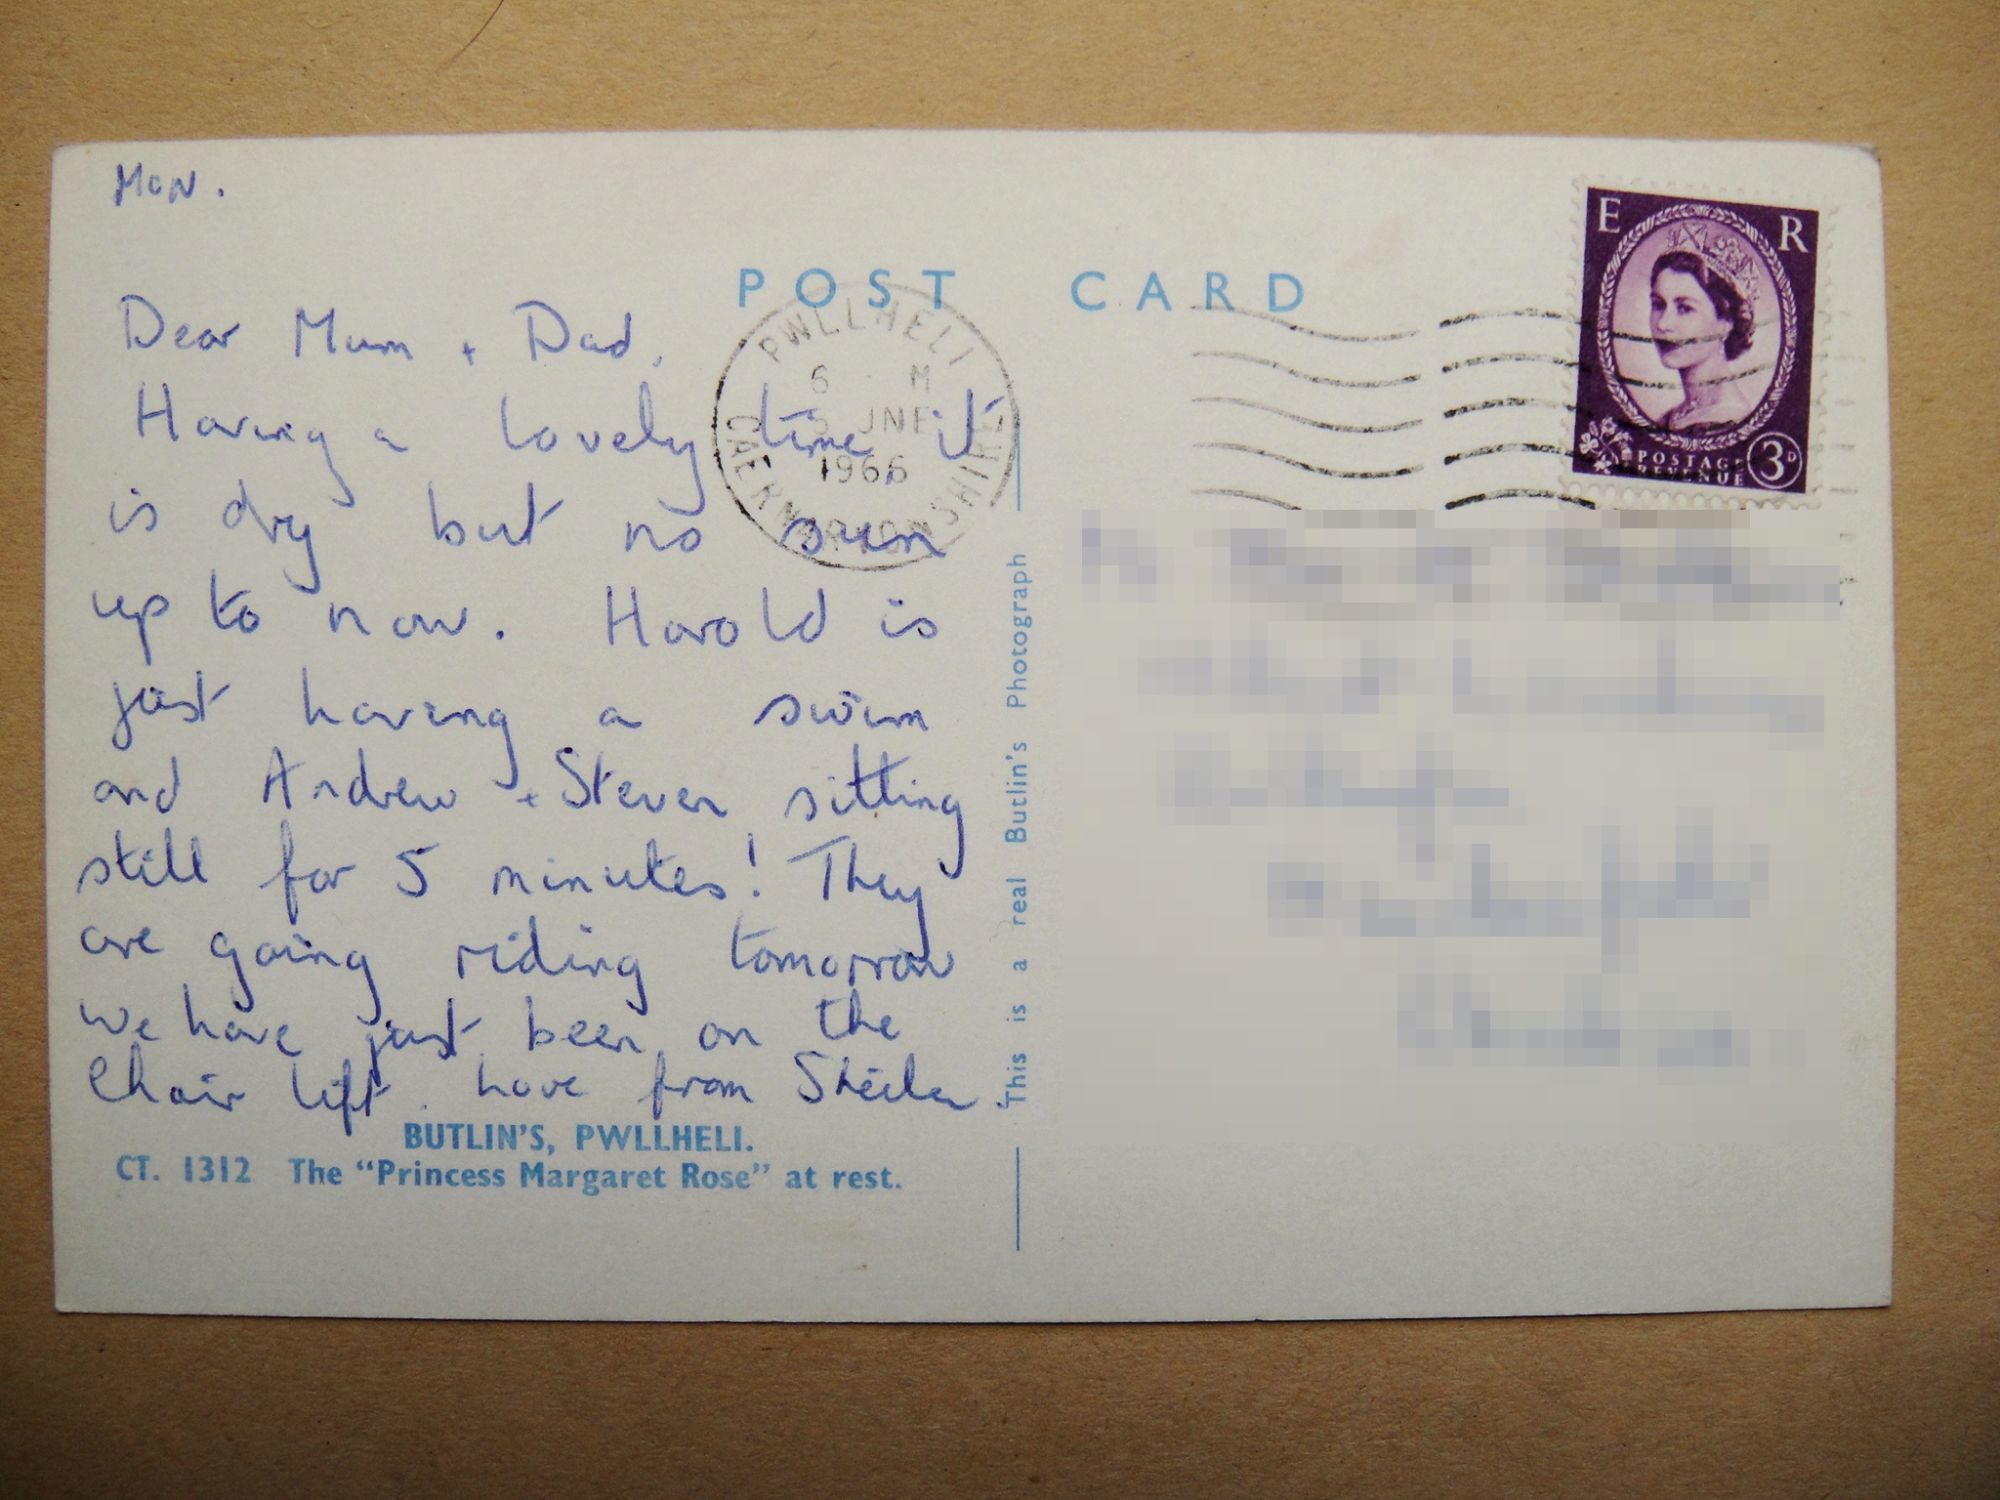 MON.
POST CARD
Dear Mum + Dad,
Having a lovely time, it
is dry but no sun
up to now. Harold is
just having a swim
and Andrew + Steven sitting
still for 5 minutes! They
are going riding tomorrow
we have just been on the
Chair lift. Love from Sheila
BUTLIN'S, PWLLHELI.
CT. 1312 The "Princess Margaret Rose" at rest.
This is a real Butlin's Photograph
PWLLHELI
6 M
JNE
1966
CAERNARVONSHIRE
E R
POSTAGE
REVENUE
3D